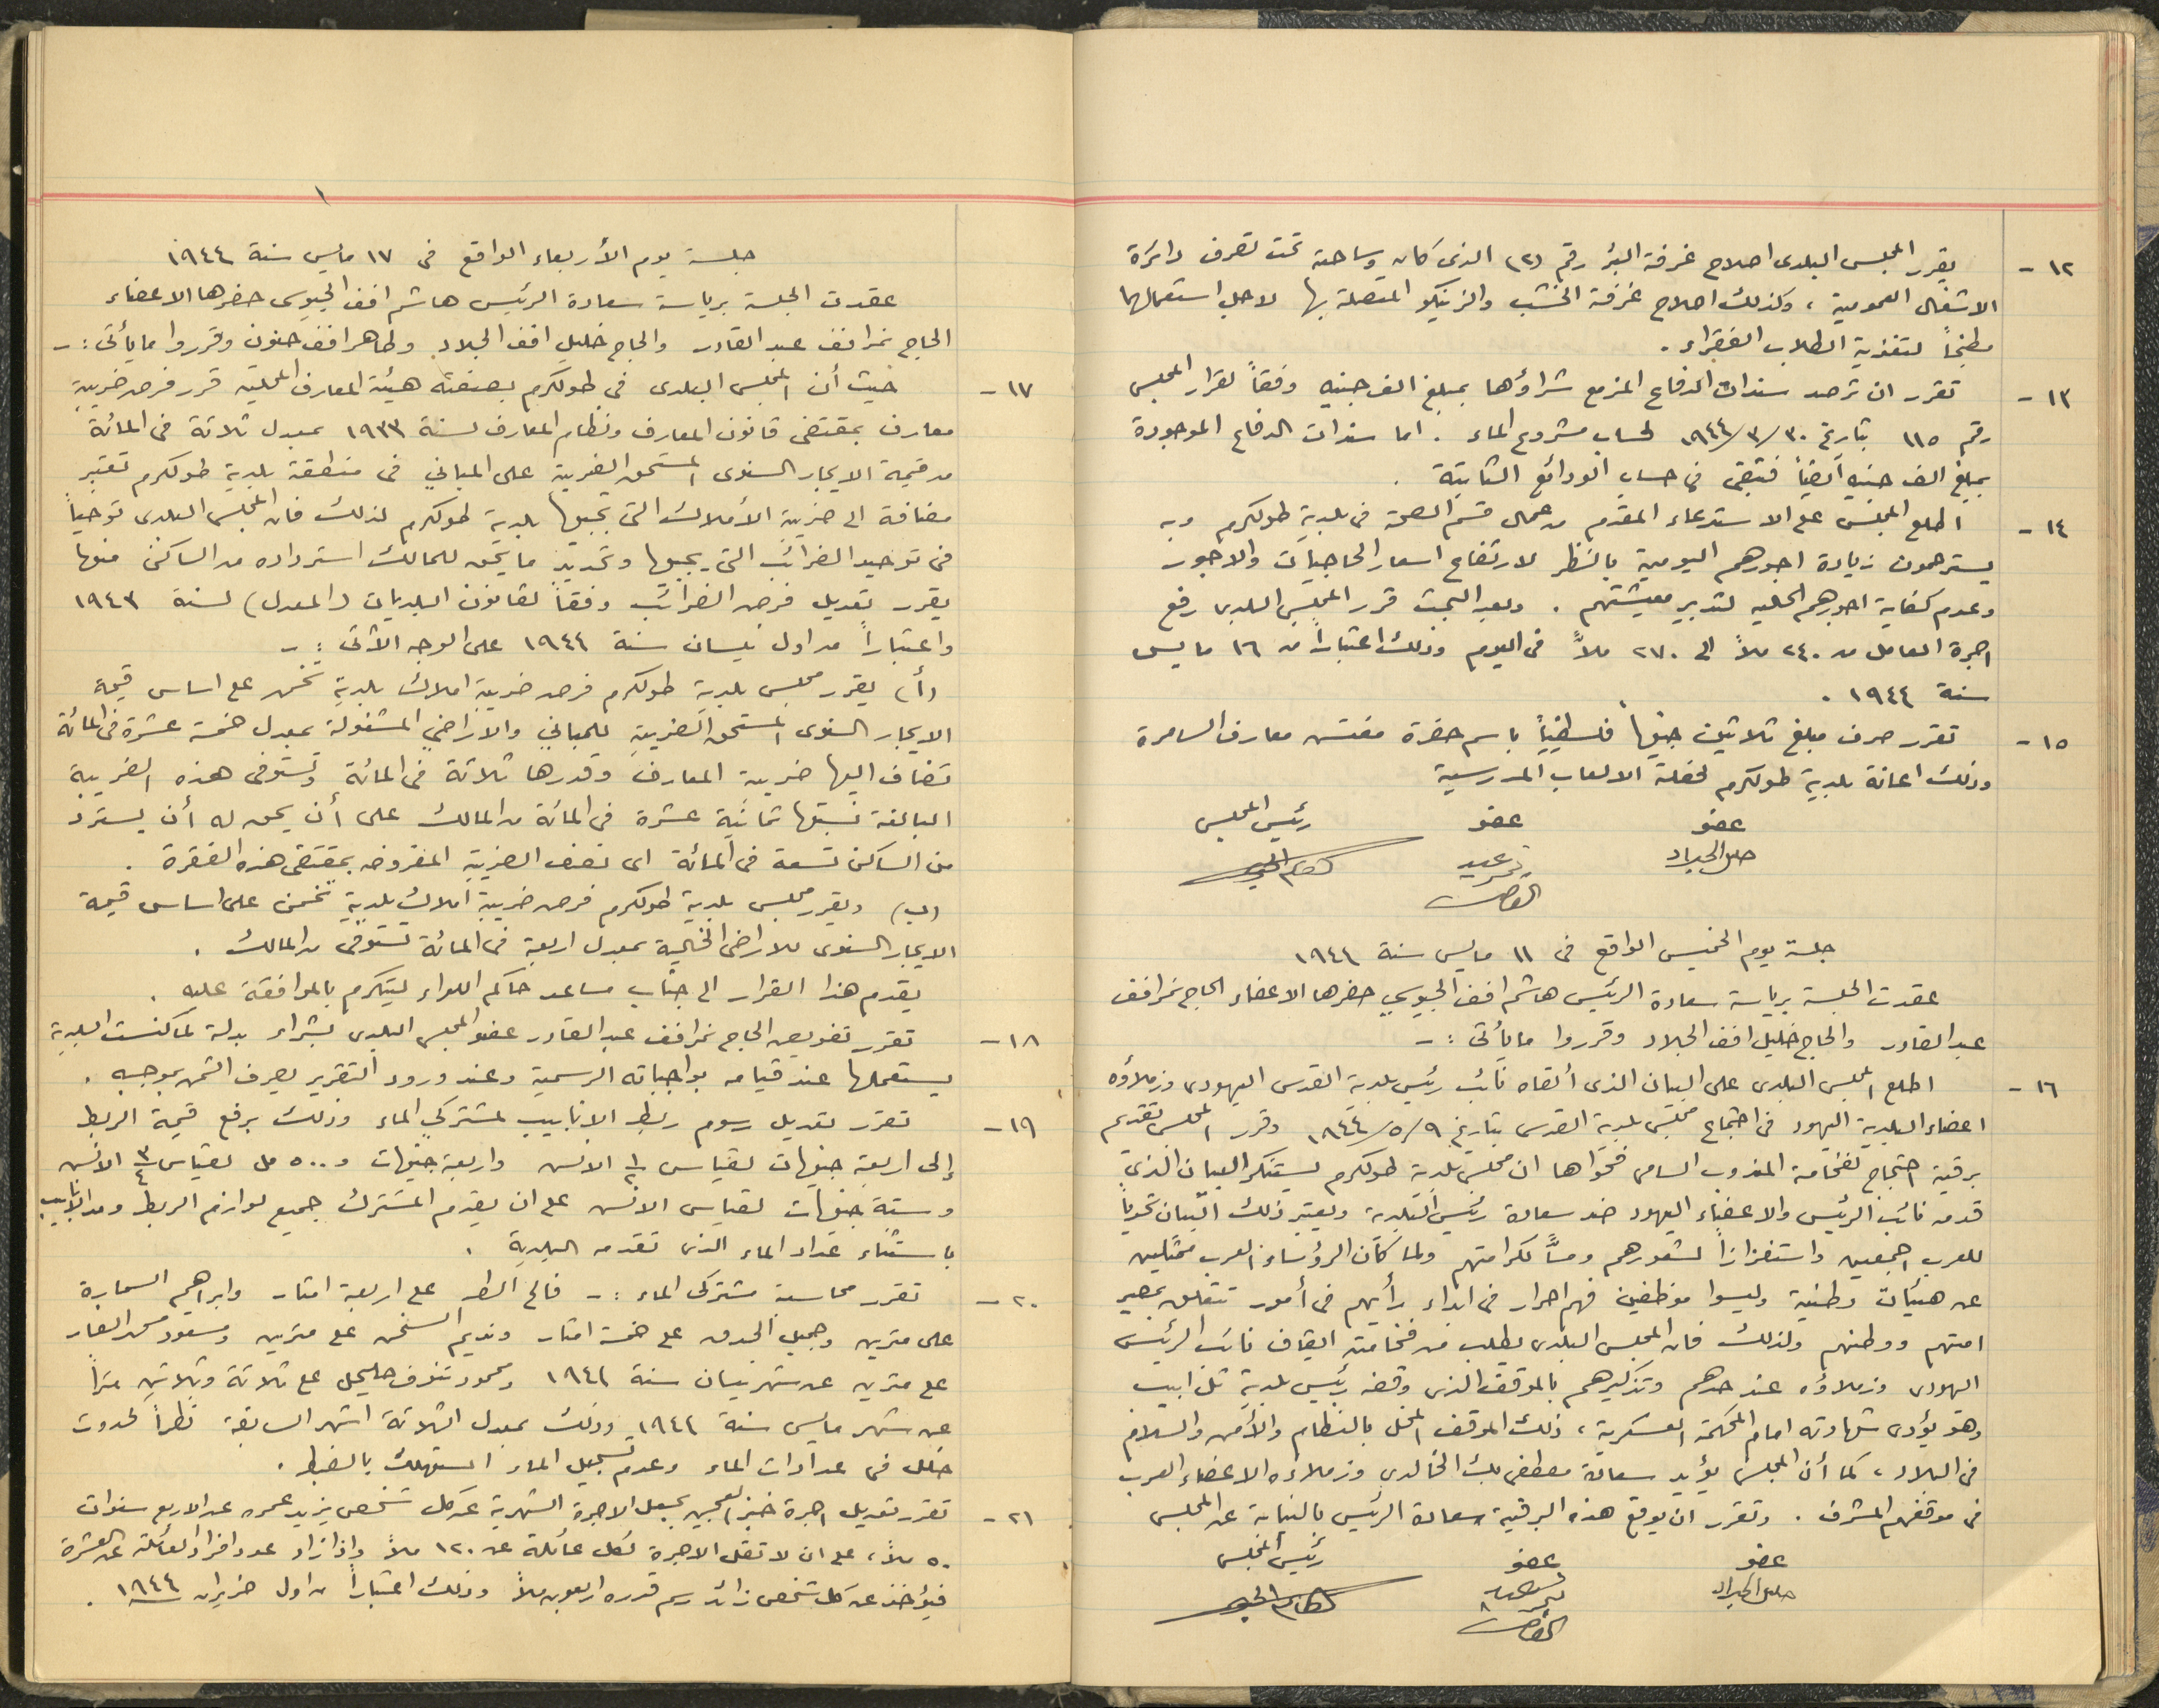 ١٢ - يقرر المجلس البلدى اصلاح غرفة البئر رقم (٢) الذى كان وساحته تحت تصرف دائرة
الاشغال العمومية ، وكذلك اصلاح غرفة الخشب والزينكو المتصلة بها لاجل استعمالها
مطبخاً لتغذية الطلاب الفقراء .
١٣ - تقرر ان ترصد سندات الدفاع المزمع شراؤها بمبلغ الف جنيه وفقاً لقرار المجلس
رقم ١١٥ بتاريخ ٣٠/٣/١٩٤٤ لحساب مشروع الماء . اما سندات الدفاع الموجودة
بمبلغ الف جنيه أيضاً فتبقى فى حساب الودائع الثابتة .
١٤ - اطلع المجلس على الاستدعاء المقدم من عمال قسم الصحة فى بلدية طولكرم وبه
يسترحمون زيادة اجورهم اليومية بالنظر لارتفاع اسعار الحاجيات والاجور
وعدم كفاية اجورهم الحاليه لتدبير معيشتهم . وبعد البحث قرر المجلس البلدى رفع
اجرة العامل من ٢٤٠ ملاً الى ٢٧٠ ملاً فى اليوم وذلك اعتباراً من ١٦ مايس
سنة ١٩٤٤ .
١٥ - تقرر صرف مبلغ ثلاثين جنيهاً فلسطينياً باسم حضرة مفتش معارف السامرة
وذلك اعانة بلدية طولكرم لحفلة الالعاب المدرسية
عضو عضو رئيس المجلس
جلسة يوم الخميس الواقع فى ١١ مايس سنة ١٩٤٤
عقدت الجلسة برياسة سعادة الرئيس هاشم افف الجيوسي حضرها الاعضاء الحاج نمر افف
عبد القادر والحاج خليل افف الجلاد وقرروا ما يأتى : -
١٦ - اطلع المجلس البلدى على البيان الذى ألقاه نائب رئيس بلدية القدس اليهودى وزملاؤه
اعضاء البلدية اليهود فى اجتماع مجلس بلدية القدس بتاريخ ٩/٥/١٩٤٤ وقرر المجلس تقديم
برقية احتجاج لفخامة المندوب السامى فحواها ان مجلس بلدية طولكرم يستنكر البيان الذي
قدمه نائب الرئيس والاعضاء اليهود ضد سعادة رئيس البلدية ويعتبر ذلك البيان تحدياً
للعرب اجمعين واستفزازاً لشعورهم ومساً لكرامتهم ولما كان الرؤساء العرب ممثلين
عن هيئات وطنية وليسوا موظفين فهم احرار فى ابداء رأيهم فى أمور تتعلق بمصير
امتهم ووطنهم ولذلك فان المجلس البلدى يطلب من فخامته ايقاف نائب الرئيس
اليهودى وزملاؤه عند حدهم وتذكيرهم بالموقف الذى وقفه رئيس بلدية تل ابيب
وهو يؤدى شهادته امام المحكمة العسكرية ، ذلك الموقف المخل بالنظام والأمن والسلام
فى البلاد ، كما أن المجلس يؤيد سعادة مصطفى بك الخالدى وزملاءه الاعضاء العرب
فى موقفهم المشرف . وتقرر ان يوقع هذه البرقية سعادة الرئيس بالنيابة عن المجلس
عضو عضو رئيس المجلس
جلسة يوم الأربعاء الواقع فى ١٧ مايس سنة ١٩٤٤
عقدت الجلسة برياسة سعادة الرئيس هاشم افف الجيوسى حضرها الاعضاء
الحاج نمر افف عبد القادر والحاج خليل افف الجلاد وطاهر افف حنون وقرروا ما يأتى : -
١٧ - حيث أن المجلس البلدى فى طولكرم بصفته هيئة المعارف المحلية قرر فرض ضريبة
معارف بمقتضى قانون المعارف ونظام المعارف لسنة ١٩٣٣ بمعدل ثلاثة فى المائة
من قيمة الايجار السنوى المستحق الضريبة على المباني فى منطقة بلدية طولكرم تعتبر
مضافة الى ضريبة الأملاك التى تجبيها بلدية طولكرم لذلك فان المجلس البلدى توخياً
فى توحيد الضرائب التى يجبيها وتحديد ما يحق للمالك استرداده من الساكن منها
يقرر تعديل فرض الضرائب وفقاً لقانون البلديات (المعدل) لسنة ١٩٤٣
واعتباراً من اول نيسان سنة ١٩٤٤ على الوجه الآتى : -
(أ) يقرر مجلس بلدية طولكرم فرض ضريبة املاك بلدية تخمن على اساس قيمة
الايجار السنوى المستحق الضريبة للمباني والاراضي المشغولة بمعدل خمسة عشرة فى المائة
تضاف اليها ضريبة المعارف وقدرها ثلاثة فى المائة وتستوفى هذه الضريبة
البالغة نسبتها ثمانية عشرة فى المائة من المالك على أن يحق له أن يسترد
من الساكن تسعة فى المائة اى نصف الضريبة المفروضه بمقتضى هذه الفقرة .
(ب) ويقرر مجلس بلدية طولكرم فرض ضريبة املاك بلدية تخمن على اساس قيمة
الايجار السنوى للاراضى الخالية بمعدل اربعة فى المائة تستوفى من المالك .
يقدم هذا القرار الى جناب مساعد حاكم اللواء ليتكرم بالموافقة عليه .
١٨ - تقرر تفويض الحاج نمر افف عبد القادر عضو المجلس البلدى بشراء بدلة لماكنست البلدية
يستعملها عند قيامه بواجباته الرسمية وعند ورود التقرير يصرف الثمن بموجبه .
١٩ - تقرر تعديل رسوم ربط الانابيب لمشتركي الماء وذلك برفع قيمة الربط
إلى اربعة جنيهات لقياس ١/٢ الانس واربعة جنيهات و ٥٠٠ مل لقياس ٣/٤ الانس
وستة جنيهات لقياس الانس على ان يقدم المشترك جميع لوازم الربط ومد الانابيب
باستثناء عداد الماء الذى تقدمه البلدية .
٢٠ - تقرر محاسبة مشتركى الماء : - فالح الطر على اربعة امتار وابراهيم السمارة
على مترين وجميل الجدع على خمسة امتار ونديم على مترين ومسعود محمد العار
على مترين عن شهر نيسان سنة ١٩٤٤ ومحمود على ثلاثة وثلاثين متراً
عن شهر مايس سنة ١٩٤٤ وذلك بمعدل الثلاثة اشهر السابقة نظراً لحدوث
خلل فى عدادات الماء وعدم تسجيل الماء المستهلك بالضبط .
٢١ - تقرر تعديل اجرة خبز العجين بجعل الاجرة الشهرية عن كل شخص يزيد عمره عن الاربع سنوات
٥٠ ملاً ، على ان لا تقل الاجرة لكل عائلة عن ١٢٠ ملاً وإذا زاد عدد افراد العائلة عن العشرة
فيؤخذ عن كل شخص زائد رسم قدره اربعون ملاً وذلك اعتباراً من اول حزيران سنة ١٩٤٤ .